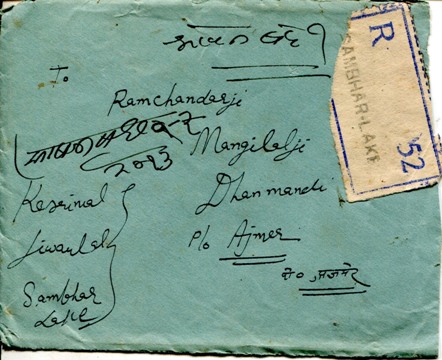 To
Ramchandarji
Mangilalji
Dhanmandi
P/o Ajmer
पो० अजमेर
Kesrimal
Jiwanlal
Sambhar
Lake
R
SAMBHAR-LAKE
52